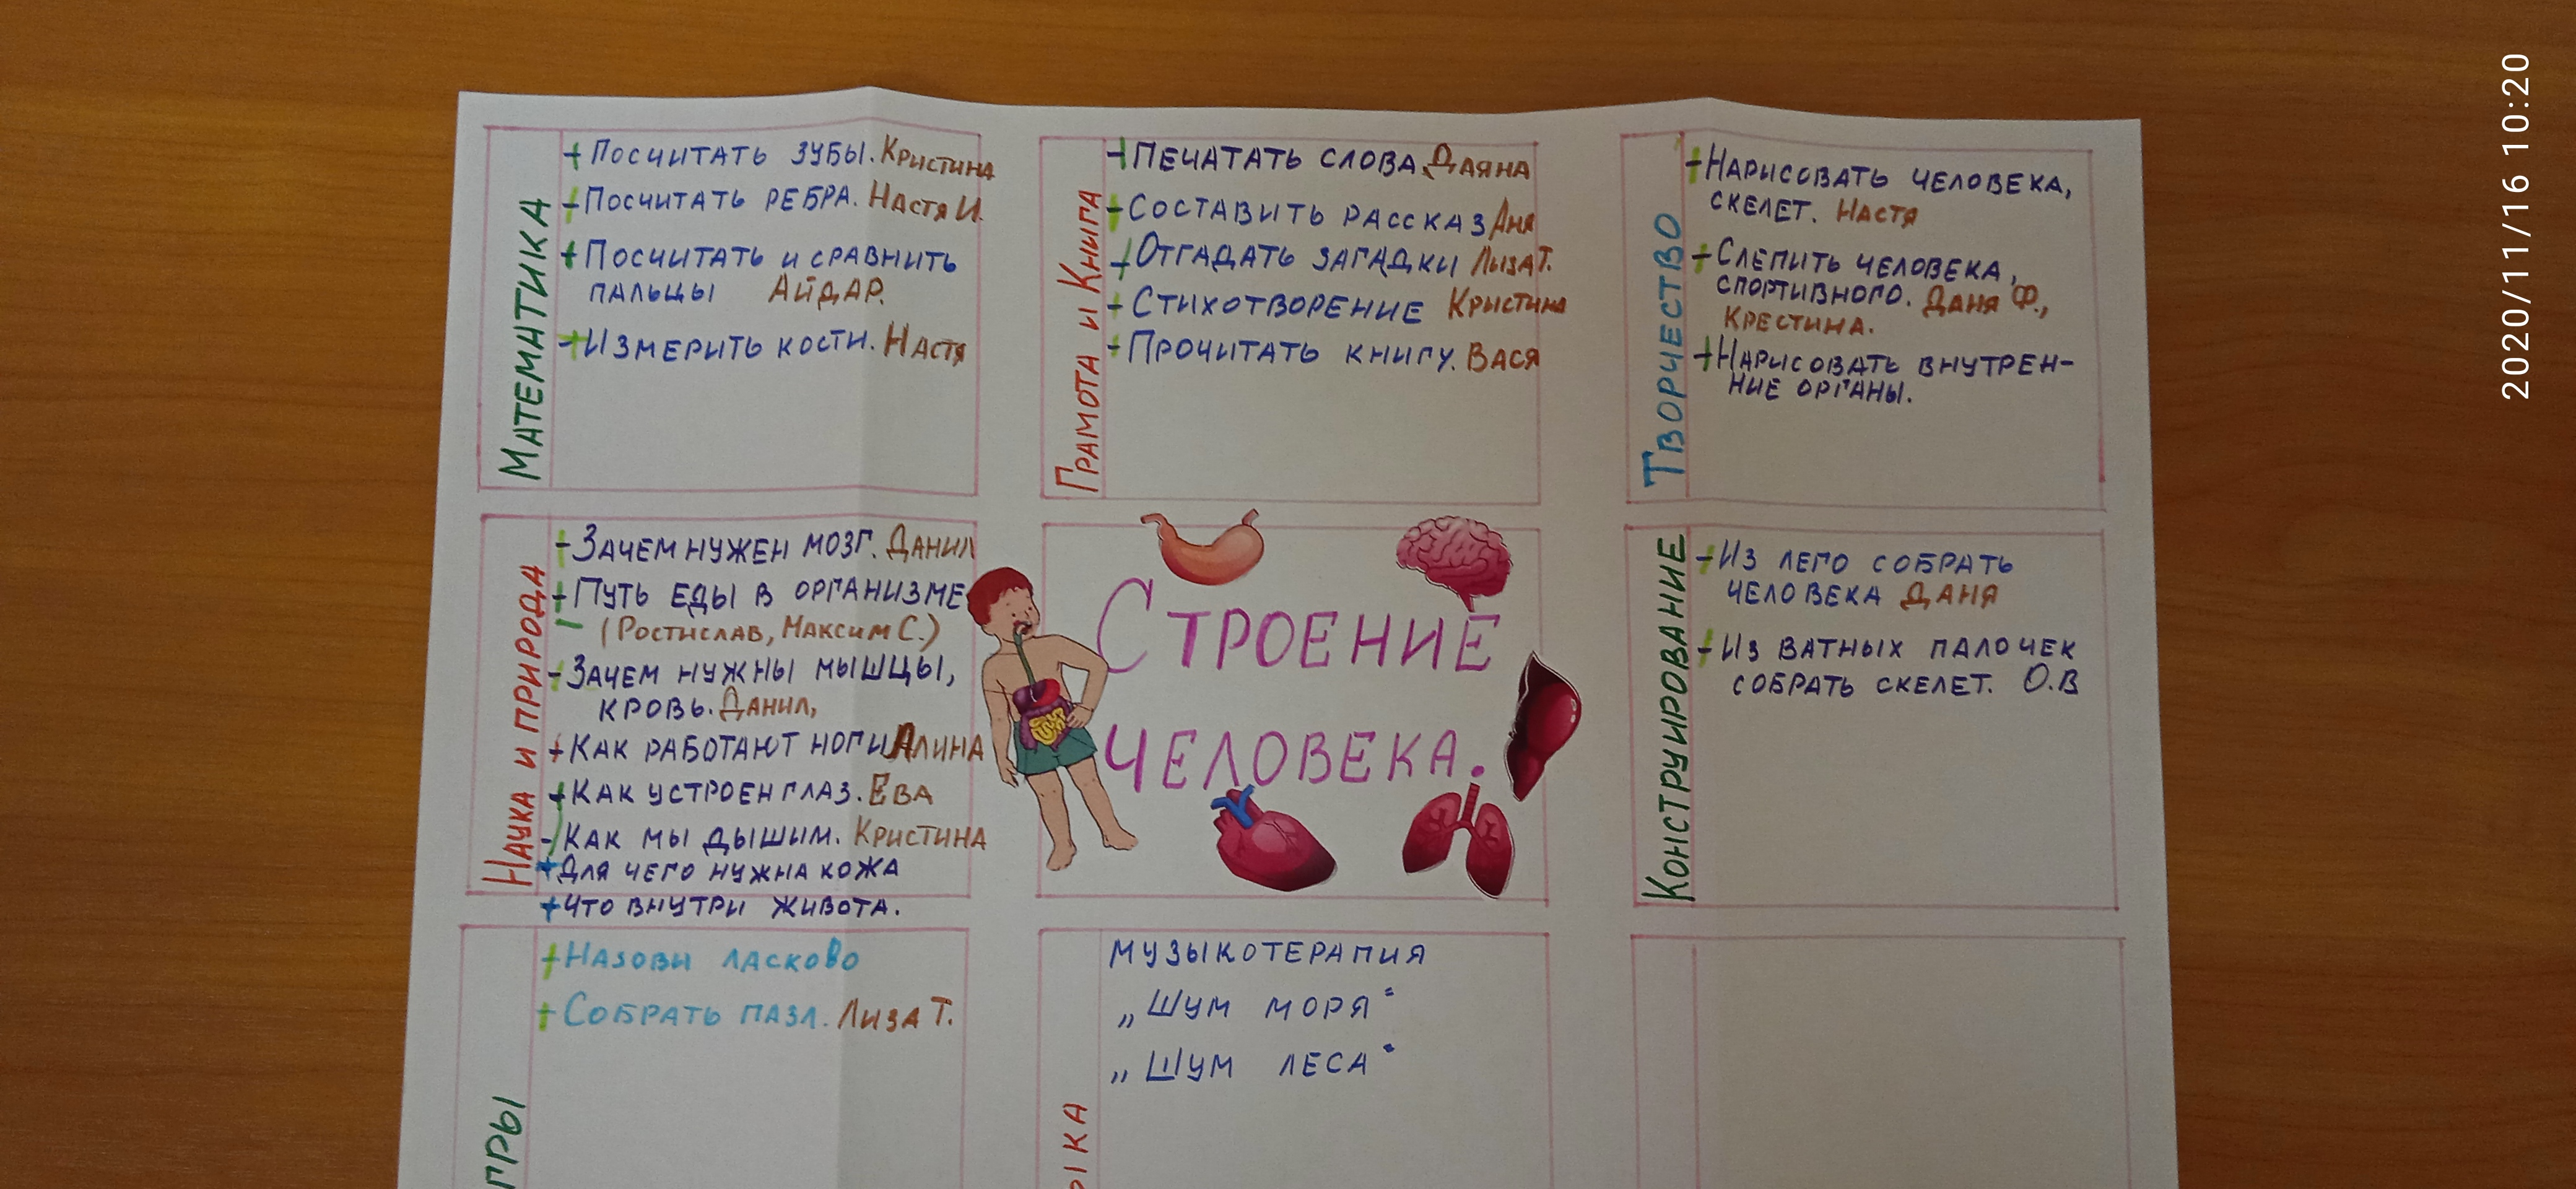 Математика
+ Посчитать зубы. Кристина
+ Посчитать ребра. Настя И.
+ Посчитать и сравнить
пальцы Айдар.
+ Измерить кости. Настя
Грамота и Книга
+ Печатать слова Даяна
+ Составить рассказ Аня
+ Отгадать загадки Лиза Т.
+ Стихотворение Кристина
+ Прочитать книгу. Вася
Творчество
+ Нарисовать человека,
скелет. Настя
+ Слепить человека,
спортивного. Даня Ф.,
Крестина.
+ Нарисовать внутрен-
ние органы.
Наука и природа
+ Зачем нужен мозг. Данил
+ Путь еды в организме
(Ростислав, Максим С.)
- Зачем нужны мышцы,
кровь. Данил,
+ Как работают ноги Алина
+ Как устроен глаз. Ева
- Как мы дышим. Кристина
+ Для чего нужна кожа
+ Что внутри живота.
Строение
человека.
Конструирование
+ Из лего собрать
человека Даня
+ Из ватных палочек
собрать скелет. О.В
гры
+ Назови ласково
+ Собрать пазл. Лиза Т.
ыка
Музыкотерапия
„Шум моря"
„Шум леса"
2020/11/16 10:20